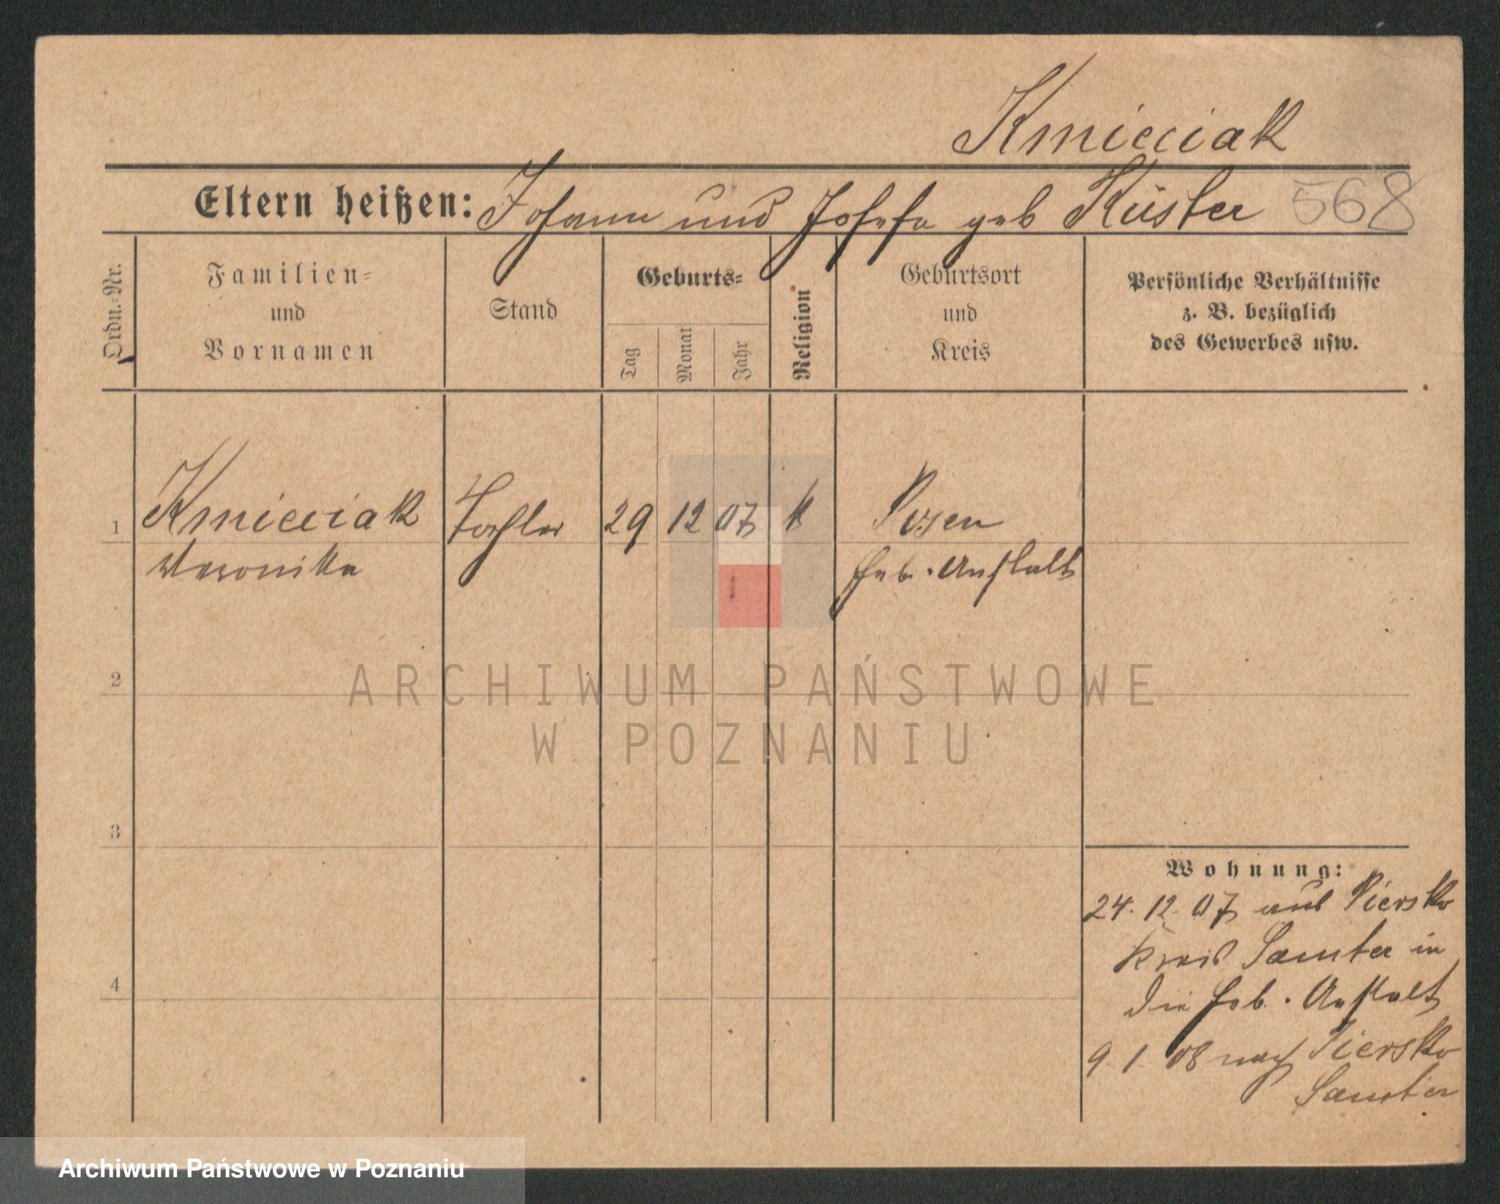 Kmieciak
Eltern heißen: Johann und Josefa geb Küster 568
Ordn.-Nr.
Familien-
und
Vornamen
Stand
Geburts-
Tag
Monat
Jahr
Religion
Geburtsort
und
Kreis
Persönliche Verhältnisse
z. B. bezüglich
des Gewerbes usw.
1 Kmieciak Tochter 29 12 07 k Posen
Veronika Heb. Anstalt
2
ARCHIWUM PAŃSTWOWE
W POZNANIU
3
Wohnung:
24. 12. 07 aus Piersko
Kreis Samter in
4
die Heb. Anstalt
9. 1. 08 nach Piersko
Samter
Archiwum Państwowe w Poznaniu